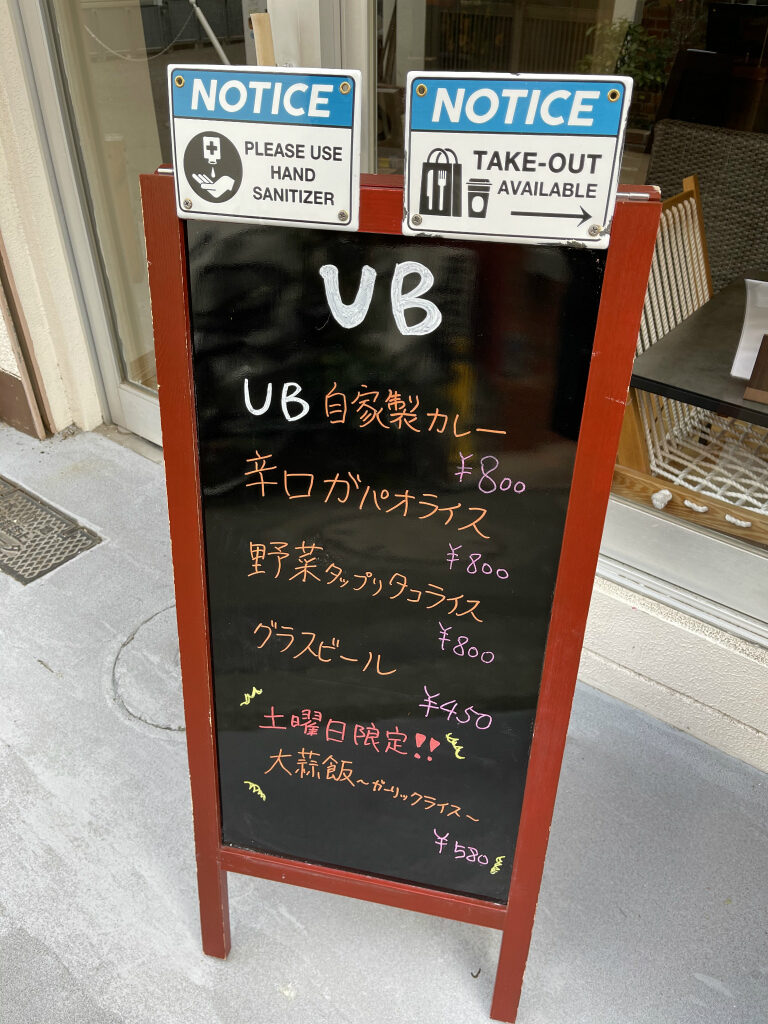 NOTICE
PLEASE USE
HAND
SANITIZER
NOTICE
TAKE-OUT
AVAILABLE
UB
UB 自家製カレー
¥800
辛口ガパオライス
¥800
野菜タップリタコライス
¥800
グラスビール
¥450
土曜日限定!!
大蒜飯～ガーリックライス～
¥580